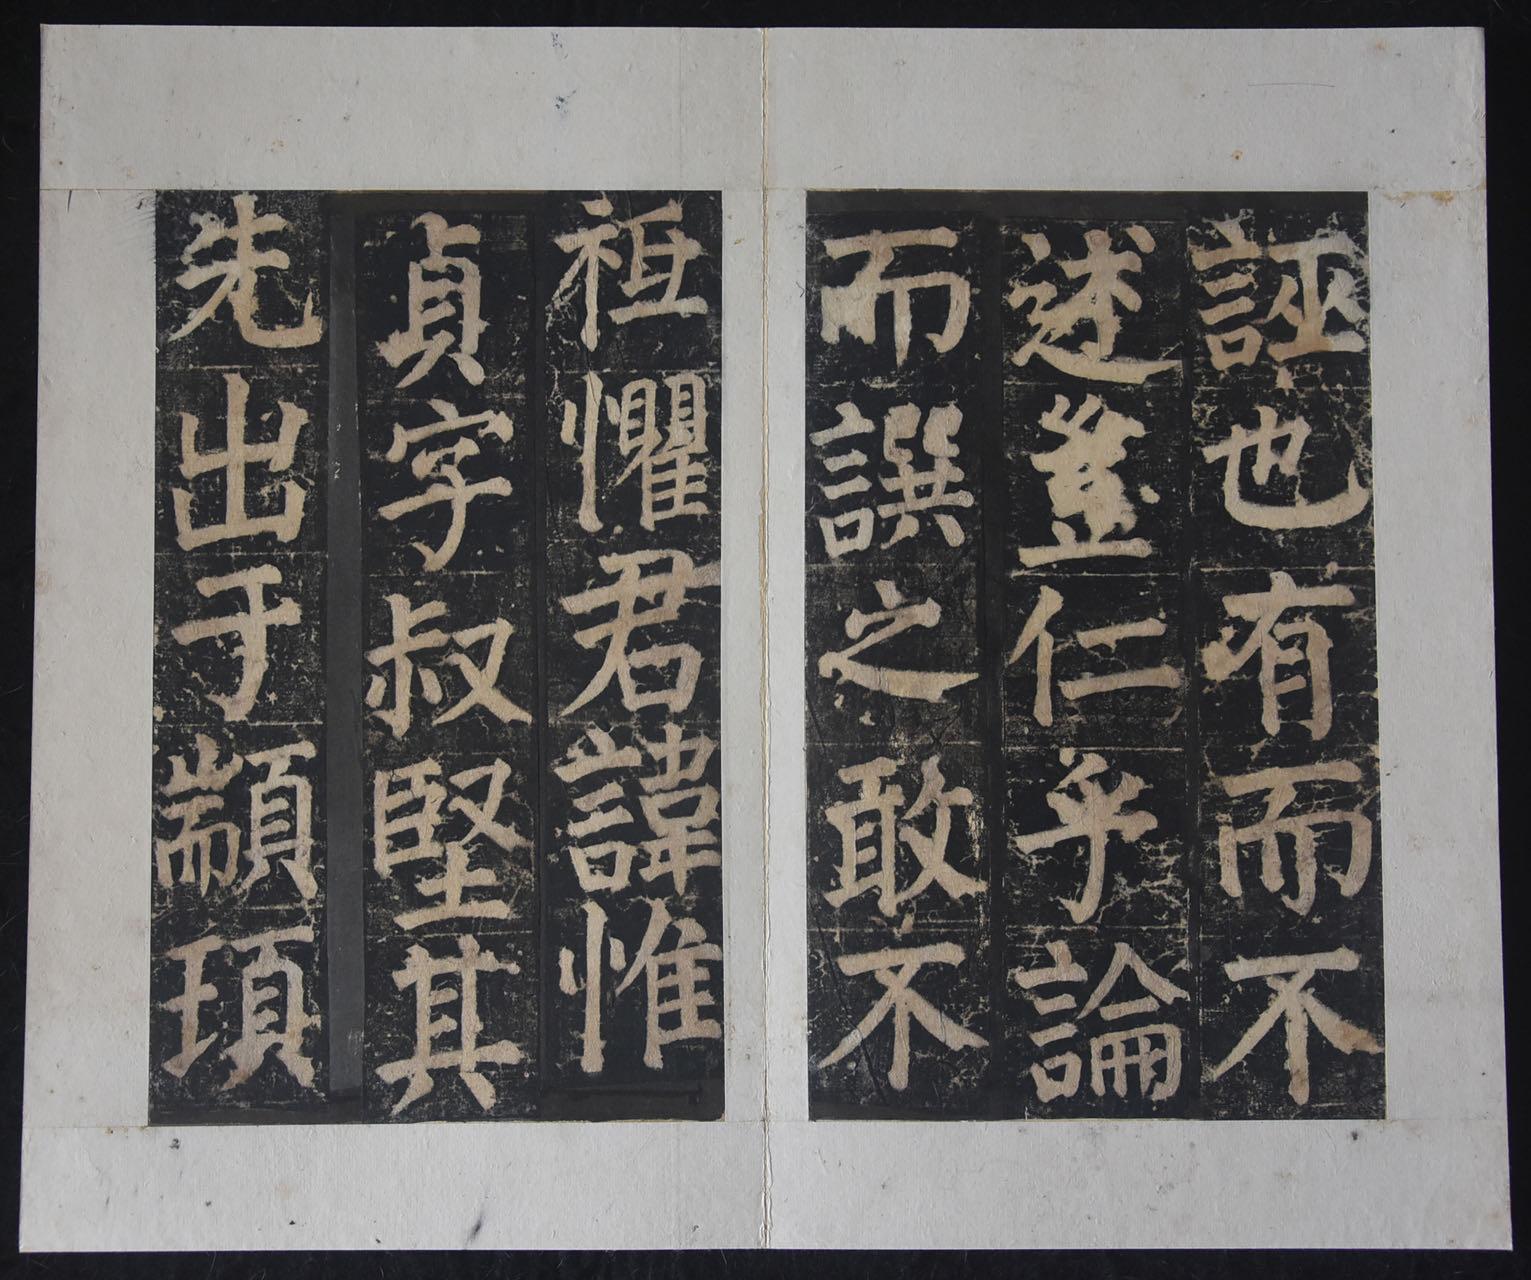 誣也有而不
述豈仁乎論
而譔之敢不
祖懼君諱惟
貞字叔堅其
先出于顓頊